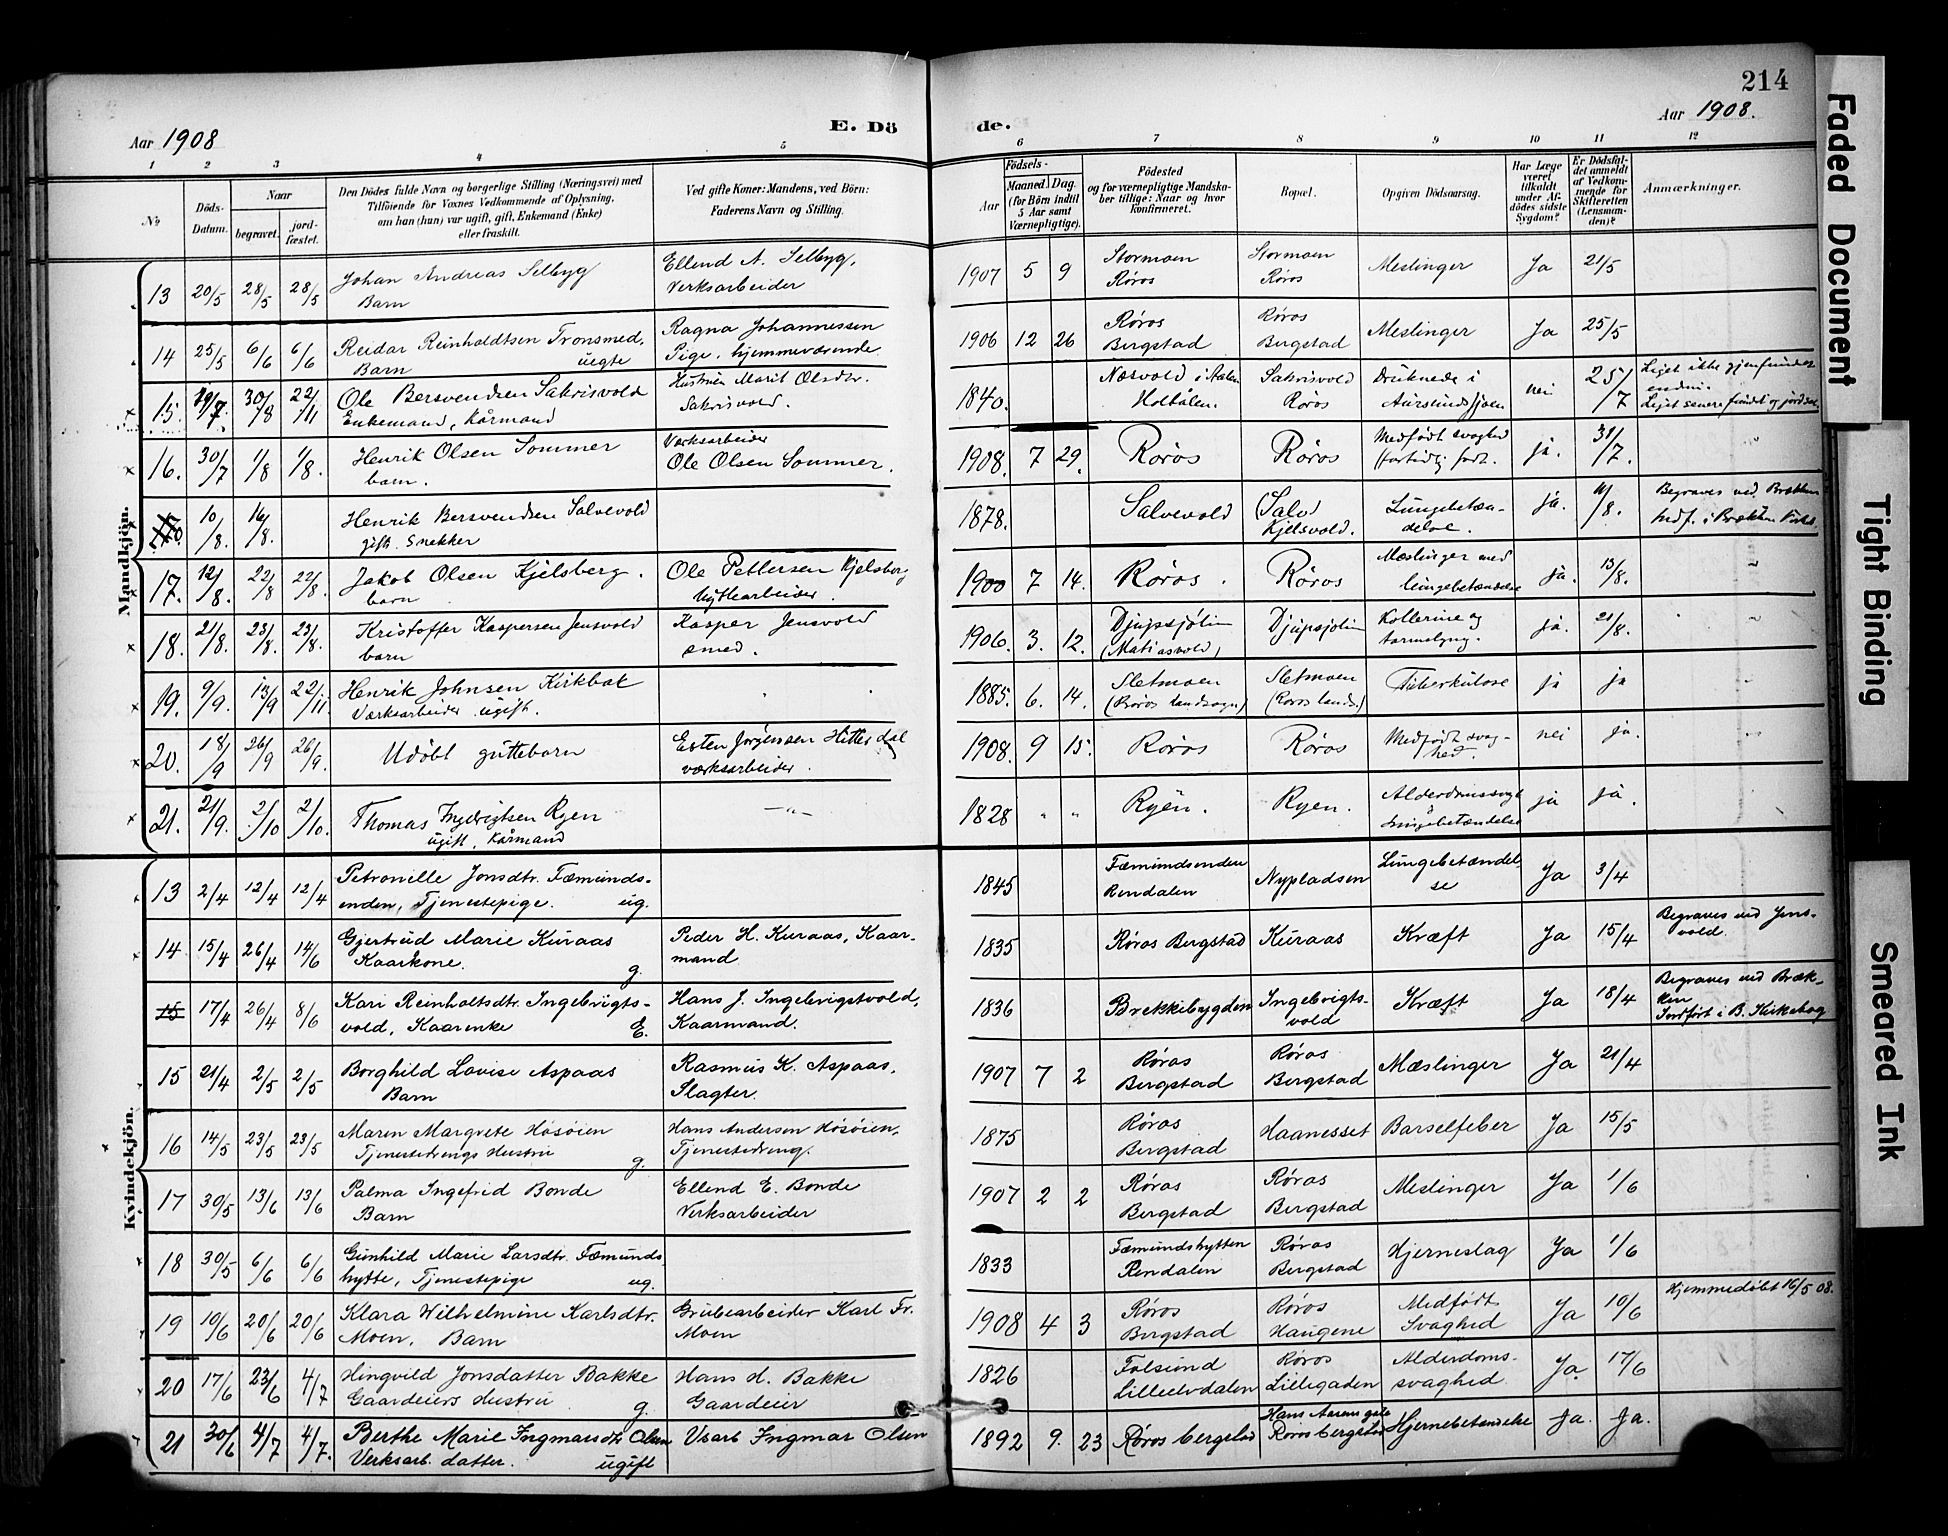 214
Aar 1908
E. Dö
de.
Aar 1908.
1 2 3 4 5 6 7 8 9 10 11 12
No
Döds-Datum.
Naar
begravet.
jord-fæstet.
Den Dödes fulde Navn og borgerlige Stilling (Næringsvei) med
Tilföiende for Voxnes Vedkommende af Oplysning,
om han (hun) var ugift, gift, Enkemand (Enke)
eller fraskilt.
Ved gifte Koner: Mandens, ved Börn:
Faderens Navn og Stilling.
Födsels-
Aar
Maaned. Dag.
(for Börn indtil
5 Aar samt
Værnepligtige).
Födested
og for værnepligtige Mandska-
ber tillige: Naar og hvor
konfirmeret.
Bopæl.
Opgiven Dödsaarsag.
Har Læge
været
tilkaldt
under Af-
dödes sidste
Sygdom?
Er Dödsfal-
det anmeldt
af Vedkom-
mende for
Skifteretten
(Lensman-
den)?
Anmærkninger.
Mandkjön.
13 20/5 28/5 28/5 Johan Andreas Selbyg Barn Ellend A. Selbyg, Verksarbeider 1907 5 9 Stormoen Røros Stormoen Røros Meslinger Ja 21/5
14 25/5 6/6 6/6 Reidar Reinholdtsen Tronsmed, uegte Barn Ragna Johannessen Pige, hjemmeværende 1906 12 26 Røros Bergstad Røros Bergstad Meslinger Ja 25/5
15. 19/7. 30/8 22/11 Ole Bersvendsen Sakrisvold Enkemand, Kårmand Hustruen Marit Olsdtr. Sakrisvold. 1840. Næsvold i Aalen Holtålen. Sakrisvold Røros Druknede i Aursundsjøen nei 25/7 Liget ikke gjenfundet endnu. Liget senere fundet og jordsat.
16. 30/7 1/8 1/8. Henrik Olsen Sommer barn. Værksarbeider Ole Olsen Sommer. 1908. 7 29. Røros Røros Medfødt svaghed (fortidlig født. ja. 31/7. "
10/8. 16/8. Henrik Bersvendsen Salvevold gift. Snekker 1878. Salvevold Kjelsvold. Lungebetæn-delse. ja. 11/8. Begraves ved Brækken Indf. i Brækken Kirkb.
17. 12/8. 22/8 22/8. Jakob Olsen Kjelsberg. barn Ole Pettersen Kjelsberg Hyttearbeider. 1900 7 14. Røros. Røros Mæslinger med lungebetændelse ja. 13/8. "
18. 21/8. 23/8. 23/8. Kristoffer Kaspersen Jensvold barn Kasper Jensvold smed. 1906. 3. 12. Djupsjølien (Matiasvold) Djupsjølien Kollerine og tarmslyng. ja. 21/8. "
19. 9/9. 13/9 22/11. Henrik Johnsen Kirkbak Værksarbeider ugift. 1885. 6. 14. Sletmoen (Røros landsogn) Sletmoen (Røros lands.) Tuberkulose ja ja "
20. 18/9 26/9 26/9. Udøbt guttebarn Esten Jørgensen Hitterdal værksarbeider. 1908. 9 15. Røros Røros Medfødt svag-hed. nei ja. "
21. 21/9. 2/10 2/10. Thomas Ingebrigtsen Ryen ugift, Kårmand -"- 1828 " " Ryen. Ryen. Alderdomssvagh. & Lungebetændelse ja ja.
Kvindekjön.
13 2/4 12/4 12/4 Petronille Jonsdtr. Fæmunds-enden, Tjenestepige. ug. 1845 Fæmundsenden Rendalen Nypladsen Lungebetændel-se Ja 3/4
14 15/4 26/4 14/6 Gjertrud Marie Kuraas Kaarkone. g. Peder H. Kuraas, Kaar-mand 1835 Røros Bergstad Kuraas Kræft Ja 15/4 Begraves ved Jens-vold.
15 17/4 26/4 8/6 Kari Reinholtsdtr. Ingebrigts-vold, Kaarenke E. Hans J. Ingebrigtsvold, Kaarmand. 1836 Brekkebygden Ingebrigts-vold Kræft Ja 18/4 Begraves ved Bræk-ken Indført i B. Kirkebog
15 21/4 2/5 2/5 Borghild Lovise Aspaas Barn Rasmus K. Aspaas, Slagter. 1907 7 2 Røros Bergstad Røros Bergstad Mæslinger Ja 21/4
16 14/5 23/5 23/5 Maren Margrete Høsøien Tjenestedrengs Hustru g. Hans Andersen Høsøien, Tjenestedreng. 1875 Røros Bergstad Haanesset Barselfeber Ja 15/5
17 30/5 13/6 13/6 Palma Ingefrid Bonde Barn Ellend E. Bonde Verksarbeider 1907 2 2 Røros Bergstad Røros Bergstad Meslinger Ja 1/6
18 30/5 6/6 6/6 Gunhild Marie Larsdtr. Fæmunds hytte, Tjenestepige ug. 1833 Fæmundshytten Rendalen Røros Bergstad Hjerneslag Ja 1/6
19 10/6 20/6 20/6 Klara Wilhelmine Karlsdtr. Moen, Barn Grubearbeider Karl Fr. Moen 1908 4 3 Røros Bergstad Røros Haugene Medfødt Svaghed Ja 10/6 Hjemmedøbt 16/5 08.
20 17/6 23/6 4/7 Hingvild Jonsdatter Bakke Gaardeiers Hustru g. Hans H. Bakke Gaardeier 1826 Lilleelvdalen Røros Lillegaden Alderdoms-svaghed. Ja 17/6
21 30/6 4/7 4/7. Berthe Marie Ingmarsdtr Olsen Verksarb. datter. ugift Vearb Ingmar Olsen 1892 9. 23 Røros bergstad Hans Aasens gate Røros bergstad Hjernebetændelse Ja. Ja.
Faded Document
Tight Binding
Smeared Ink